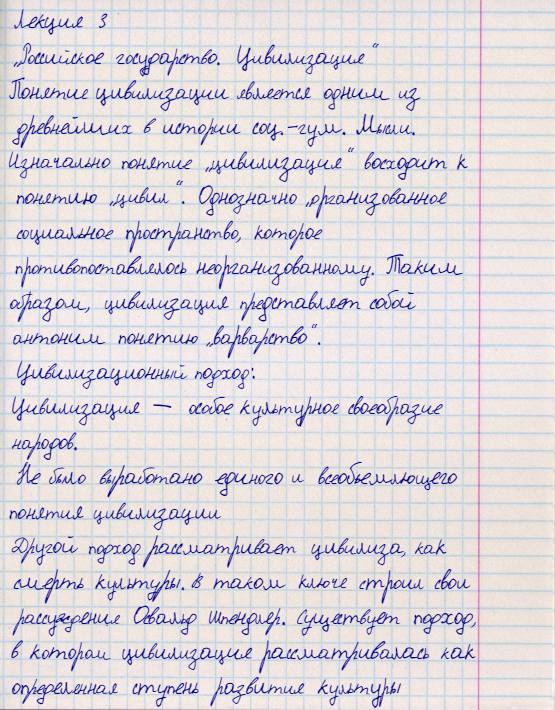 Лекция 3
„Российское государство. Цивилизация“
Понятие цивилизации является одним из
древнейших в истории соц.-гум. Мысли.
Изначально понятие „цивилизация“ восходит к
понятию „цивил“. Однозначно „организованное
социальное пространство, которое
противопоставлялось неорганизованному. Таким
образом, цивилизация представляет собой
антоним понятию „варварство“.
Цивилизационный подход:
Цивилизация — особое культурное своеобразие
народов.
Не было выработано единого и всеобъемлющего
понятия цивилизации
Другой подход рассматривает цивилиза, как
смерть культуры. В таком ключе строил свои
рассуждения Освальд Шпендлер. Существует подход,
в котором цивилизация рассматривалась как
определенная ступень развития культуры